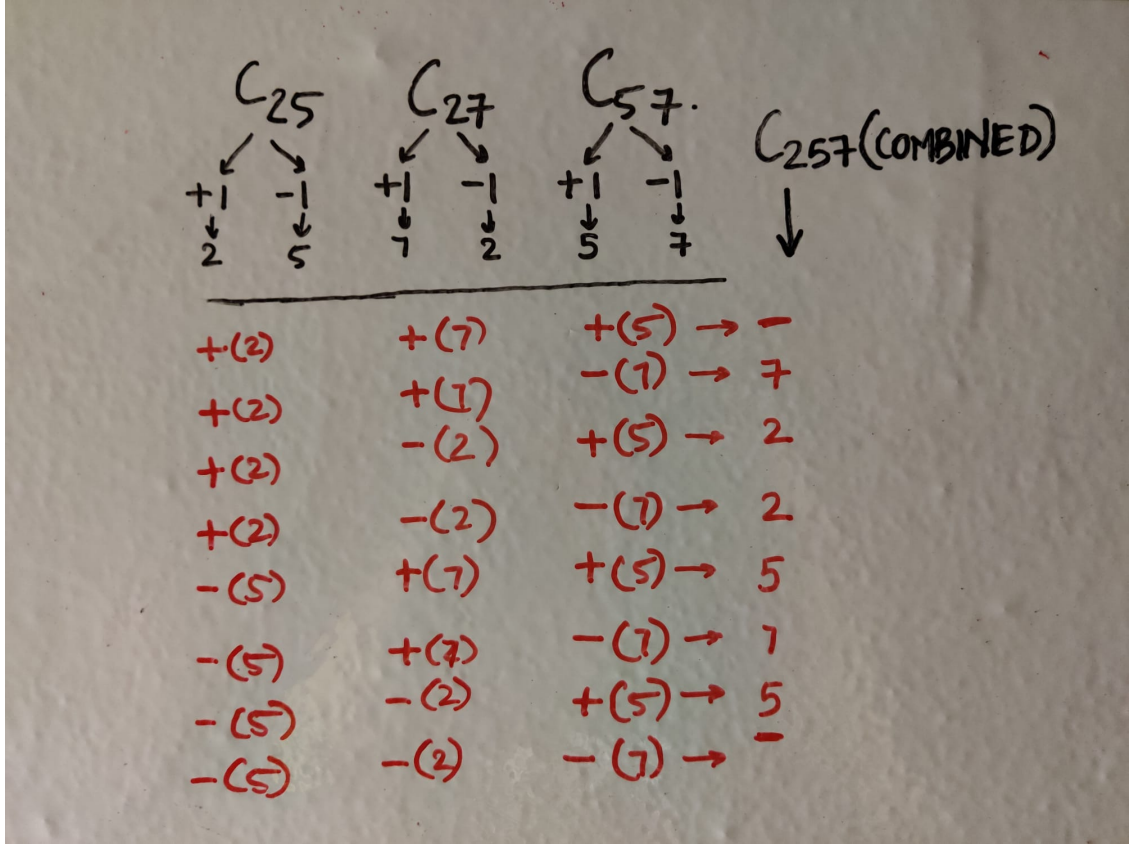 C25 C27 C57. C257 (COMBINED)
+1 -1 +1 -1 +1 -1
2 5 7 2 5 7
+(2) +(7) +(5) → -
+(2) +(7) -(7) → 7
+(2) -(2) +(5) → 2
+(2) -(2) -(7) → 2
-(5) +(7) +(5) → 5
-(5) +(7) -(7) → 7
-(5) -(2) +(5) → 5
-(5) -(2) -(7) → -